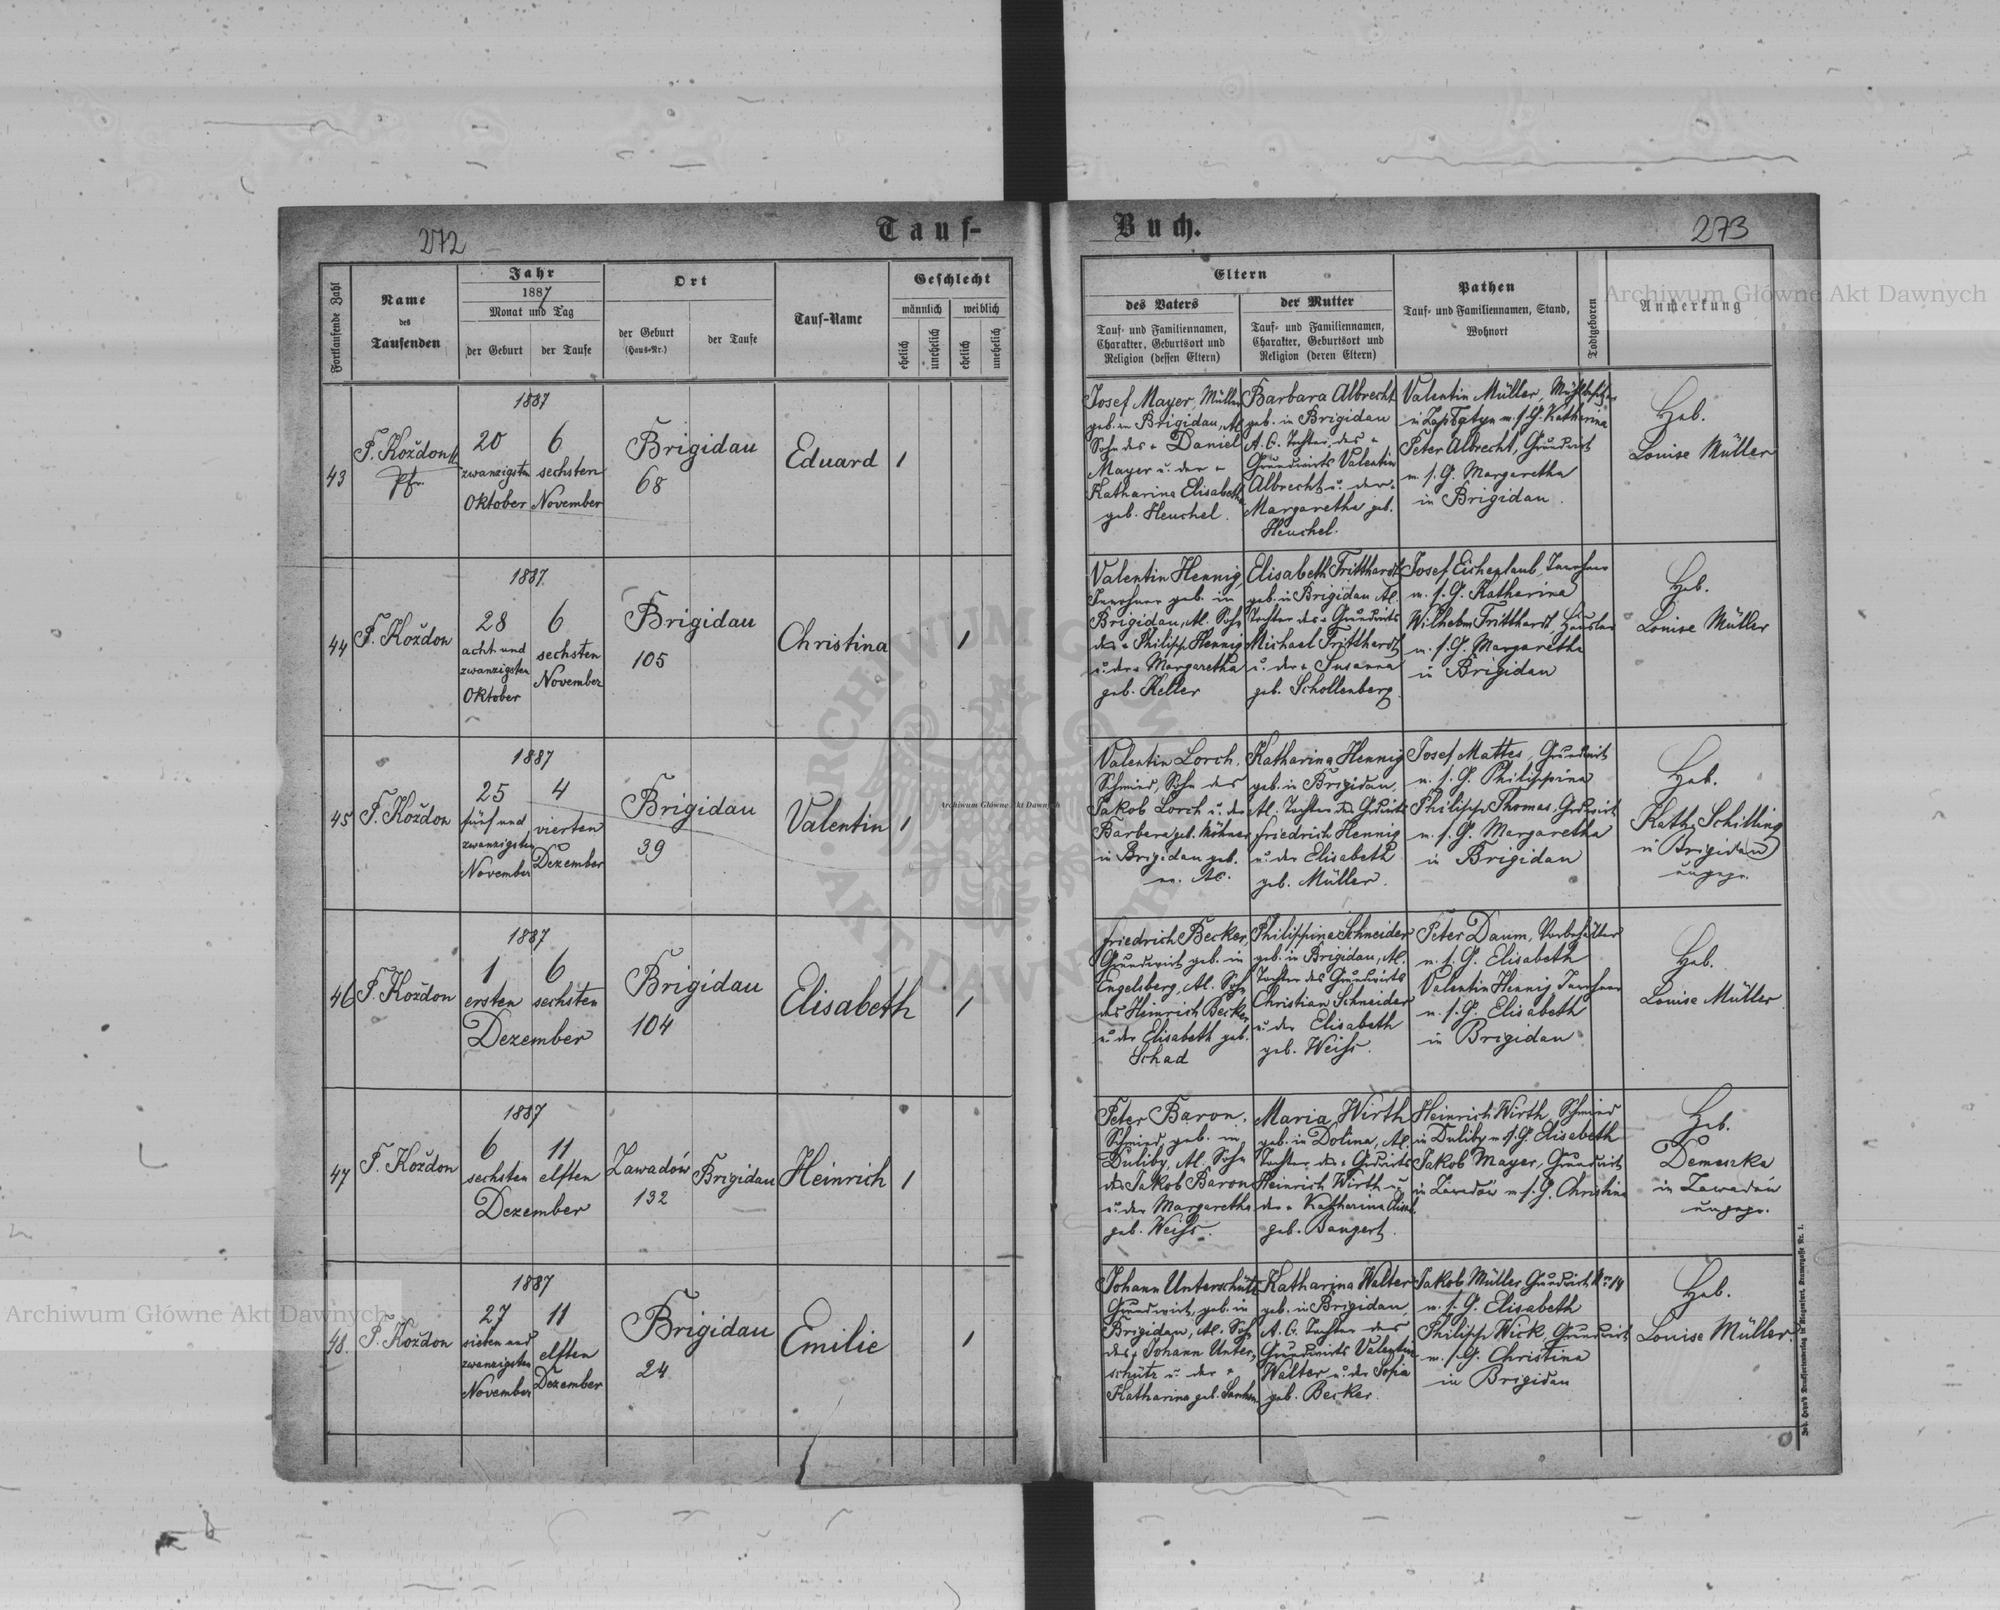 272
Tauf-
Fortlaufende Zahl
Name
des
Taufenden
Jahr
1887
Monat und Tag
der Geburt
der Taufe
Ort
der Geburt
(Haus-Nr.)
der Taufe
Tauf-Name
Geschlecht
männlich
weiblich
ehelich
unehelich
ehelich
unehelich
43
F. Koždon
Pfr.
1887
20
zwanzigsten
Oktober
6
sechsten
November
Brigidau
68
Eduard
1
44
F. Koždon
1887
28
acht und
zwanzigsten
Oktober
6
sechsten
November
Brigidau
105
Christina
1
45
F. Koždon
1887
25
fünf und
zwanzigsten
November
4
vierten
Dezember
Brigidau
39
Valentin
1
46
F. Koždon
1887
1
ersten
6
sechsten
Dezember
Brigidau
104
Elisabeth
1
47
F. Koždon
1887
6
sechsten
11
elften
Dezember
Zawadów
132
Brigidau
Heinrich
1
48.
F. Koždon
1887
27
sieben und
zwanzigsten
November
11
elften
Dezember
Brigidau
24
Emilie
1
Buch.
273
Eltern
des Vaters
Tauf- und Familiennamen,
Charakter, Geburtsort und
Religion (dessen Eltern)
der Mutter
Tauf- und Familiennamen,
Charakter, Geburtsort und
Religion (deren Eltern)
Pathen
Tauf- und Familiennamen, Stand,
Wohnort
Todtgeboren
Anmerkung
Josef Mayer, Müller
geb. in Brigidau, AC
Sohn des + Daniel
Mayer u. der +
Katharina Elisabeth
geb. Heuchel.
Barbara Albrecht
geb. in Brigidau
A. C. Tochter des +
Grundwirts Valentin
Albrecht u. der +
Margaretha geb.
Heuchel.
Valentin Müller,
m. s. G. Katharina
Peter Albrecht, Grundwirt
m. s. G. Margaretha
in Brigidau.
Heb.
Louise Müller
Valentin Hennig
Inwohner geb. in
Brigidau, AC. Sohn
des + Philipp Hennig
u. der + Margaretha
geb. Keller
Elisabeth Fritthardt
geb. in Brigidau AC.
Tochter des + Grundwirts
Michael Fritthardt
u. der + Susanna
geb. Schollenberg.
Josef Eichenlaub, Inwohner
m. s. G. Katharina
Wilhelm Fritthardt, Häusler
m. s. G. Margaretha
in Brigidau
Heb.
Louise Müller
Valentin Lorch.
Schmied, Sohn des
Jakob Lorch u. der
Barbara geb. Möhner
in Brigidau geb.
ev. AC.
Katharina Hennig
geb. in Brigidau,
AC. Tochter des Grdwirts
Friedrich Hennig
u. der Elisabeth
geb. Müller.
Josef Mattes, Grundwirt
m. s. G. Philippina
Philipp Thomas, Grdwirt
m. s. G. Margaretha
in Brigidau
Heb.
Kath. Schilling
in Brigidau
ungepr.
Friedrich Becker,
Grundwirt, geb. in
Engelsberg, AC. Sohn
des Heinrich Becker
u. der Elisabeth geb.
Schad
Philippine Schneider
geb. in Brigidau, AC.
Tochter des Grundwirts
Christian Schneider
u. der Elisabeth
geb. Weiss.
Peter Daum, Vorbehälter
m. s. G. Elisabeth
Valentin Hennig Inwohner
m. s. G. Elisabeth
in Brigidau
Heb.
Louise Müller
Peter Baron,
Schmied, geb. in
Duliby, AC. Sohn
des Jakob Baron
u. der Margaretha
geb. Weiss.
Maria Wirth
geb. in Dolina, AC.
Tochter des + Grdwirts
Heinrich Wirth u.
der + Katharina Elisab.
geb. Bangert.
Heinrich Wirth, Schmied
in Duliby m. s. G. Elisabeth
Jakob Mayer, Grundwirt
in Zawadów m. s. G. Christina
Heb.
Demeszka
in Zawadów
ungepr.
Johann Unterschütz
Grundwirt, geb. in
Brigidau, AC. Sohn
des + Johann Unter-
schütz u. der +
Katharina geb.
Katharina Walter
geb. in Brigidau,
A. C. Tochter des
Grundwirts Valentin
Walter u. der Sofia
geb. Becker.
Jakob Müller, Grundwirt, No 14
m. s. G. Elisabeth
Philipp Wick, Grundwirt
m. s. G. Christina
in Brigidau
Heb.
Louise Müller.
Archiwum Główne Akt Dawnych
Archiwum Główne Akt Dawnych
Archiwum Główne Akt Dawnych